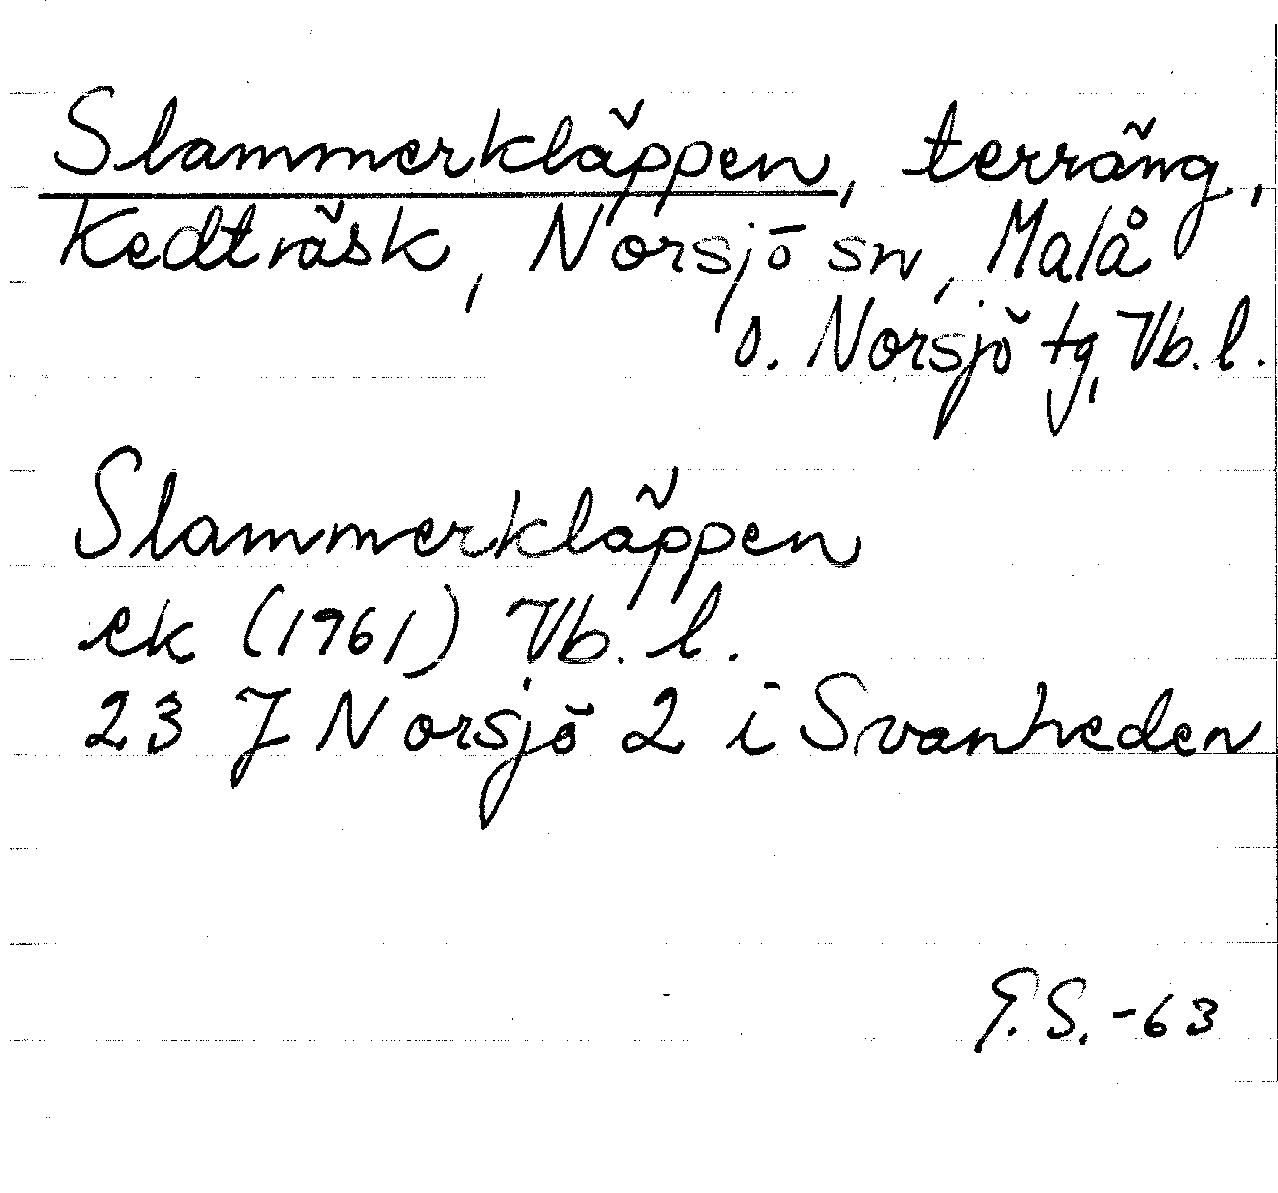 Slammerkläppen, terräng,
Kedträsk, Norsjö sn, Malå
o. Norsjö tg, Vb. l.
Slammerkläppen
ek (1961) Vb. l.
23 J Norsjö 2 i Svanheden
G.S. -63